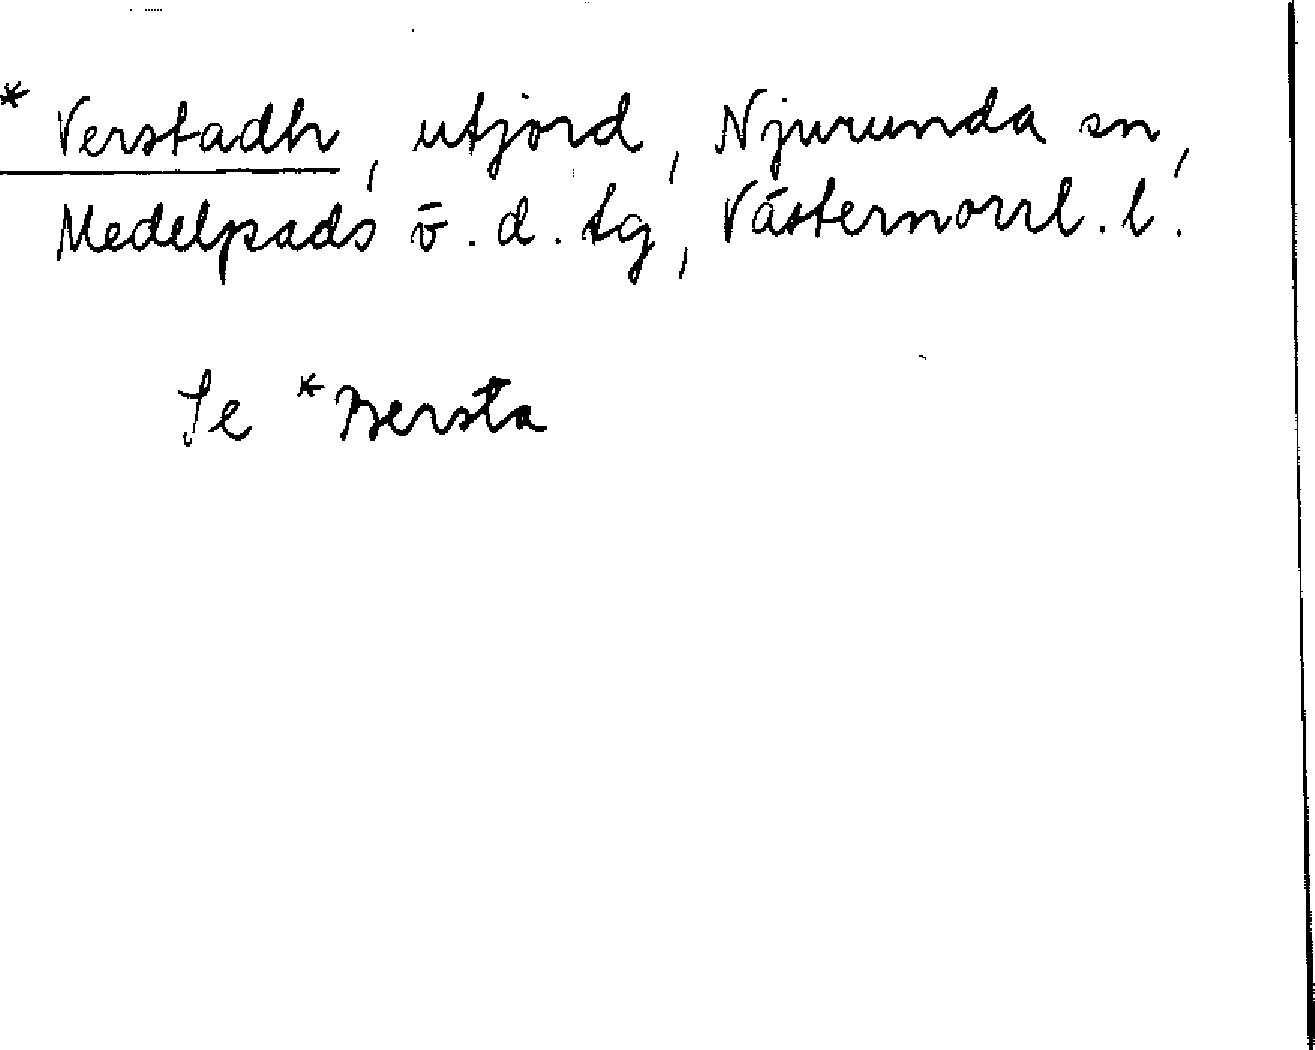 * Verstadh, utjord, Njurunda sn,
Medelpads ö.d. tg, Västernorrl. l.
Se * Bersta